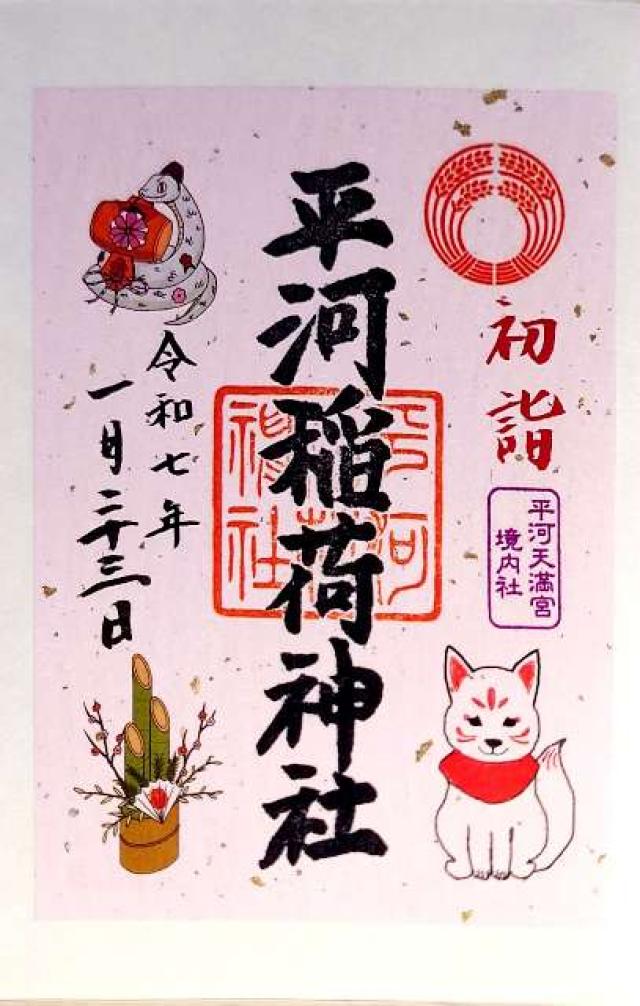 初詣
平河天満宮
境内社
平河稲荷神社
平河
稲荷
神社
令和七年
一月二十三日